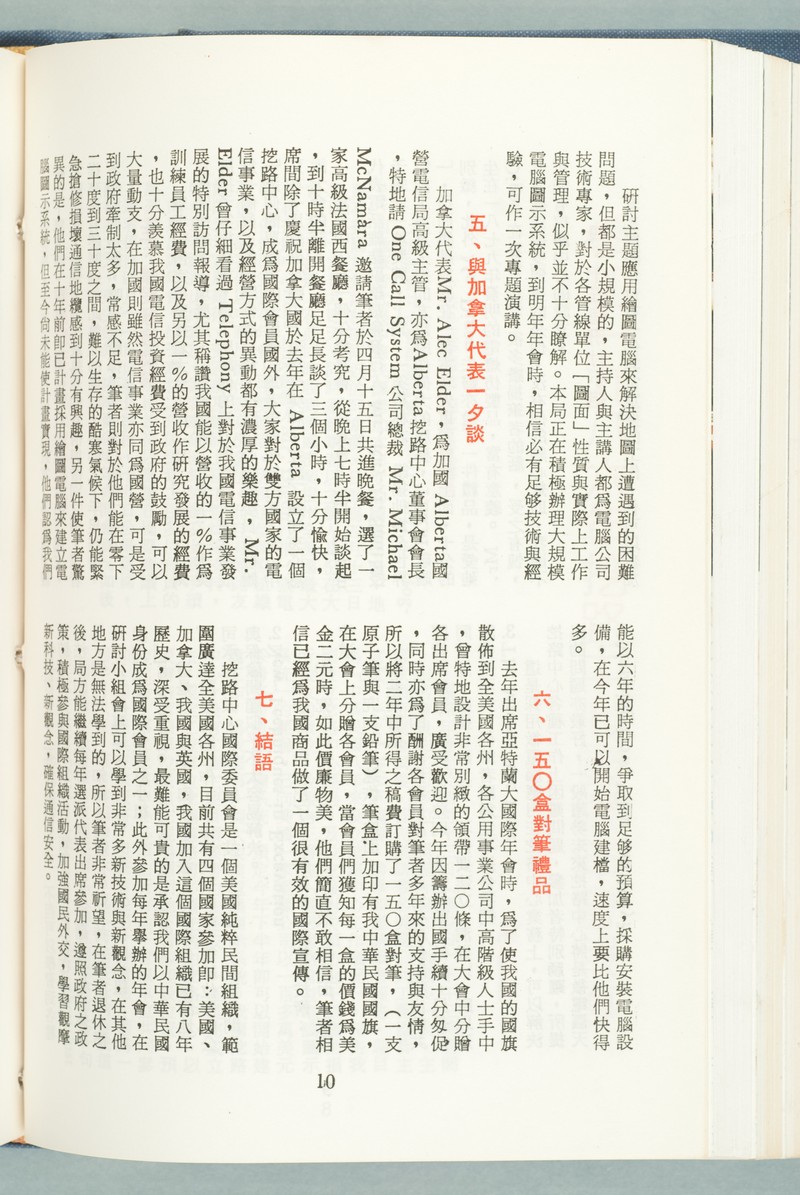 研討主題應用繪圖電腦來解決地圖上遭遇到的困難
問題，但都是小規模的，主持人與主講人都爲電腦公司
技術專家，對於各管線單位「圖面」性質與實際上工作
與管理，似乎並不十分瞭解。本局正在積極辦理大規模
電腦圖示系統，到明年年會時，相信必有足够技術與經
驗，可作一次專題演講。
五、與加拿大代表一夕談
加拿大代表Mr. Alec Elder，爲加國 Alberta國
營電信局高級主管，亦爲Alberta挖路中心董事會會長
，特地請 One Call System 公司總裁 Mr. Michael
McNamara 邀請筆者於四月十五日共進晚餐，選了一
家高級法國西餐廳，十分考究，從晚上七時半開始談起
，到十時半離開餐廳足足長談了三個小時，十分愉快，
席間除了慶祝加拿大國於去年在 Alberta 設立了一個
挖路中心，成爲國際會員國外，大家對於雙方國家的電
信事業，以及經營方式的異動都有濃厚的樂趣，Mr.
Elder 曾仔細看過 Telephony 上對於我國電信事業發
展的特別訪問報導，尤其稱讚我國能以營收的一%作爲
訓練員工經費，以及另以一%的營收作研究發展的經費
，也十分羨慕我國電信投資經費受到政府的鼓勵，可以
大量動支，在加國則雖然電信事業亦同爲國營，可是受
到政府牽制太多，常感不足，筆者則對於他們能在零下
二十度到三十度之間，難以生存的酷寒氣候下，仍能緊
急搶修損壞通信地纜感到十分有興趣，另一件使筆者驚
異的是，他們在十年前卽已計畫採用繪圖電腦來建立電
腦圖示系統，但至今尚未能使計畫實現，他們認爲我們
能以六年的時間，爭取到足够的預算，採購安裝電腦設
備，在今年已可以開始電腦建檔，速度上要比他們快得
多。
六、一五〇盒對筆禮品
去年出席亞特蘭大國際年會時，爲了使我國的國旗
散佈到全美國各州，各公用事業公司中高階級人士手中
，曾特地設計非常別緻的領帶一二〇條，在大會中分贈
各出席會員，廣受歡迎。今年因籌辦出國手續十分匆促
，同時亦爲了酬謝各會員對筆者多年來的支持與友情，
所以將二年中所得之稿費訂購了一五〇盒對筆，（一支
原子筆與一支鉛筆），筆盒上加印有我中華民國國旗，
在大會上分贈各會員，當會員們獲知每一盒的價錢爲美
金二元時，如此價廉物美，他們簡直不敢相信，筆者相
信已經爲我國商品做了一個很有效的國際宣傳。
七、結語
挖路中心國際委員會是一個美國純粹民間組織，範
圍廣達全美國各州，目前共有四個國家參加卽：美國、
加拿大、我國與英國，我國加入這個國際組織已有八年
歷史，深受重視，最難能可貴的是承認我們以中華民國
身份成爲國際會員之一；此外參加每年舉辦的年會，在
研討小組會上可以學到非常多新技術與新觀念，在其他
地方是無法學到的，所以筆者非常祈望，在筆者退休之
後，局方能繼續每年選派代表出席參加，遵照政府之政
策，積極參與國際組織活動，加強國民外交，學習觀摩
新科技、新觀念，確保通信安全。
10